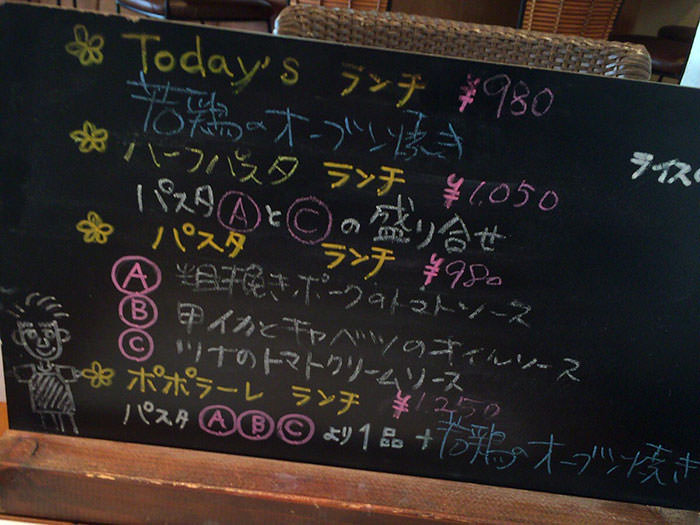 Today's ランチ ¥980
若鶏のオーブン焼き
ハーフパスタ ランチ ¥1,050
パスタⒶとⒸの盛り合せ
パスタ ランチ ¥980
Ⓐ 粗挽きポークのトマトソース
Ⓑ 甲イカとキャベツのオイルソース
Ⓒ ツナのトマトクリームソース
ポポラーレ ランチ ¥1,250
パスタ ⒶⒷⒸより1品+若鶏のオーブン焼き
ライス